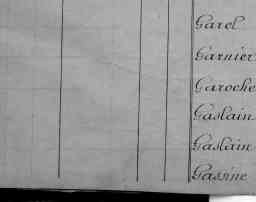 Garel
Garnier
Garoche
Gaslain
Gaslain
Gassine